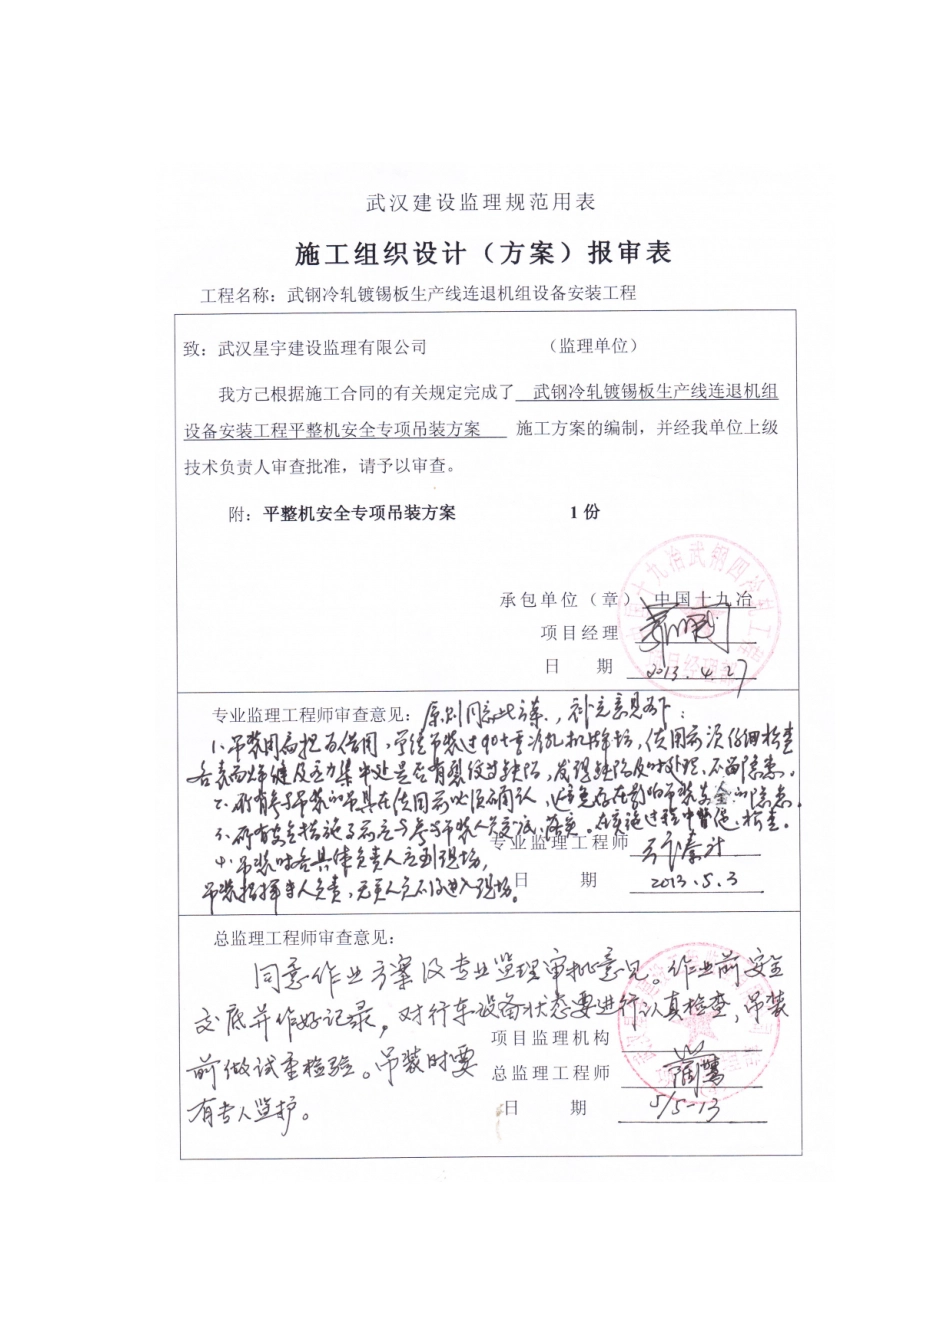 武汉建设监理规范用表
施工组织设计（方案）报审表
工程名称：武钢冷轧镀锡板生产线连退机组设备安装工程
致：武汉星宇建设监理有限公司 （监理单位）
我方己根据施工合同的有关规定完成了 武钢冷轧镀锡板生产线连退机组
设备安装工程平整机安全专项吊装方案 施工方案的编制，并经我单位上级
技术负责人审查批准，请予以审查。
附：平整机安全专项吊装方案 1 份
承包单位（章） 中国十九冶
项目经理
日 期 2013.4.27
专业监理工程师审查意见：原则同意此方案，补充意见如下：
各表面焊缝及应力集中处是否有裂纹等缺陷，发现缺陷及时处理，不留隐患。
专业监理工程师
吊装时各具体负责人应到现场，
日 期 2013.5.3
吊装指挥专人负责，无关人员不得进入现场。
总监理工程师审查意见：
同意作业方案及专业监理审批意见。作业前安全
交底并作好记录，对行车设备状态要进行认真检查，吊装
项目监理机构
前做试重检验。吊装时要
总监理工程师
有专人监护。
日 期 5/5-13